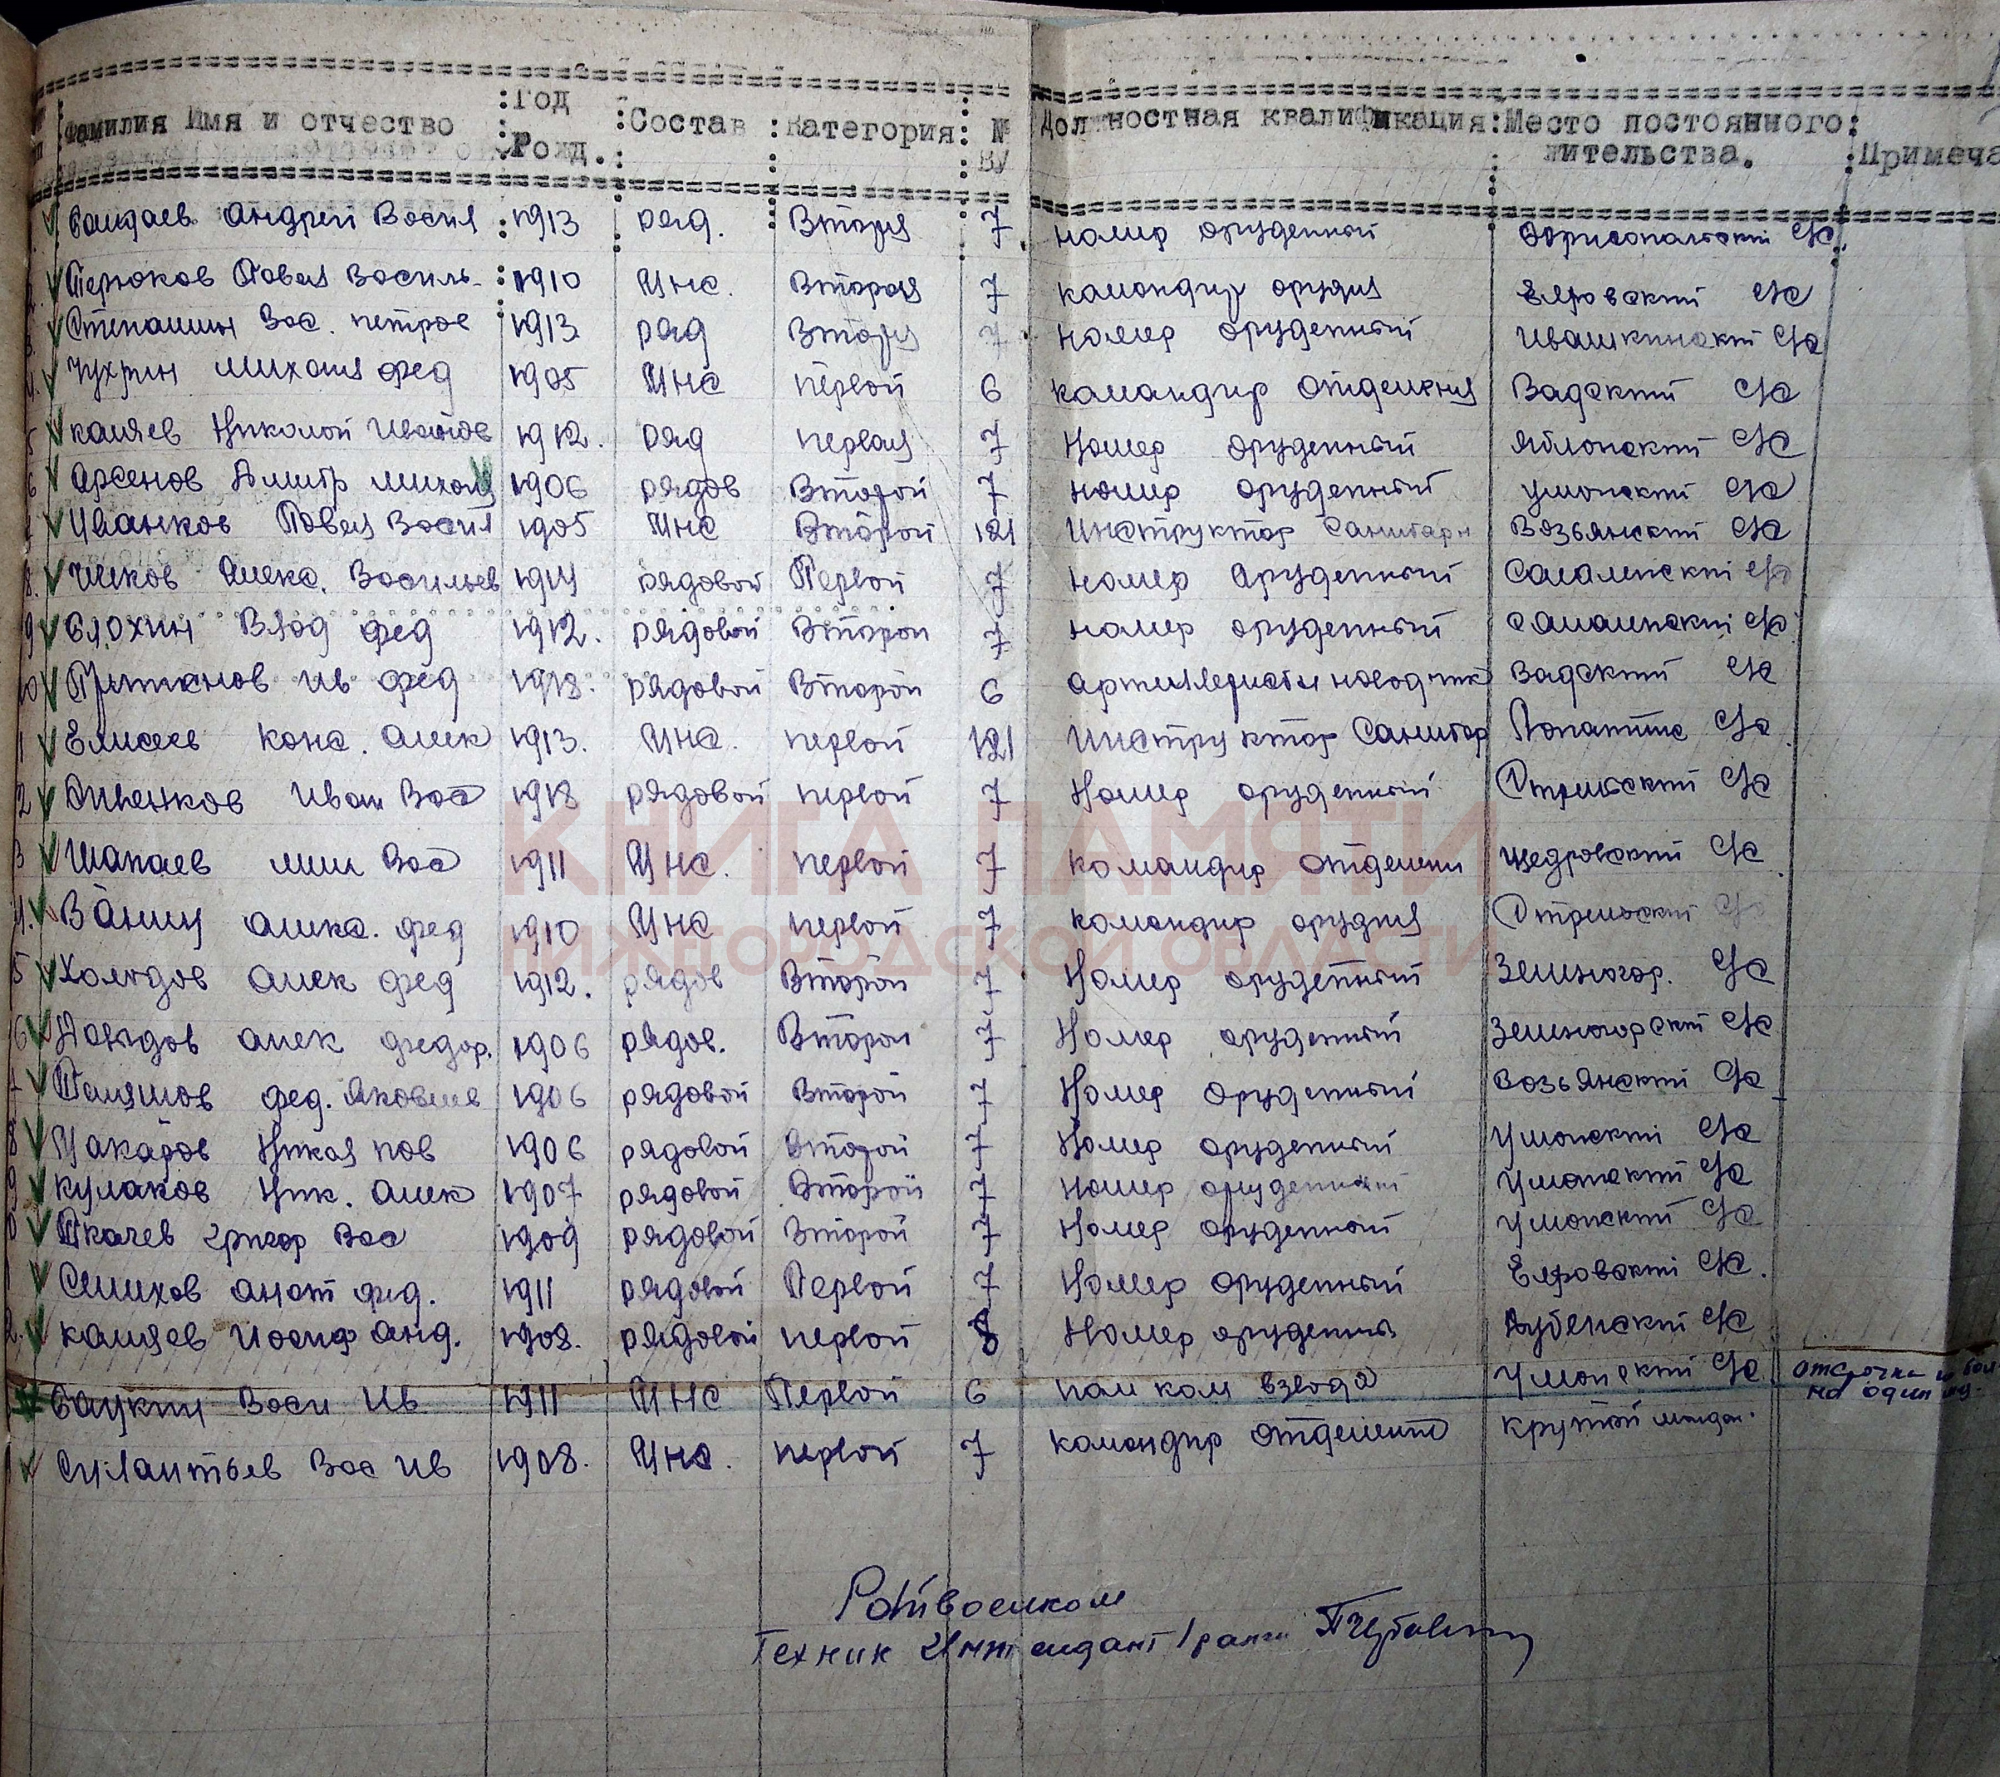 Фамилия Имя и отчество : Год Рожд. : Состав : Категория : № ВУ Должностная квалификация : Место постоянного жительства. : Примеча
Андрей Васил 1913 ряд. Вторая 7 номер орудейный Борисопольский с/с
2. Павел Василь- 1910 мнс. Вторая 7 командир орудия Елховский с/с
3. Степанин Вас. петров 1913 ряд Вторя 7 номер орудейный Ивашкинский с/с
4. Чухрин михаил фед 1905 мнс первой 6 командир отделения Вадский с/с
5 каляев Николай Иванов 1912. ряд первая 7 Номер орудейный Яблонский с/с
6 Арсенов Дмитр михаил 1906 рядов Второй 7 номер орудейный умонский с/с
7 Иванков Павел Васил 1905 мнс Второй 121 Инструктор Санитарн Возьянский с/с
8. Чиков Алекс. Васильев рядовой Первой 7 номер орудейный с/с
9 Блохин Влад фед 1912. рядовой Второй 7 номер орудейный с/с
10 ив фед рядовой Второй 6 артиллерист наводчик Вадский с/с
1 Елисеев Конс. Алек 1913. мнс. первой 121 Инструктор Санитар Лопатинс с/с
2 Иван Вас 1918 рядовой первой 7 Номер орудейный с/с
3 Шапаев мих Вас 1911 мнс. первой 7 командир отделени щедровский с/с
4. Ванин алекс. фед 1910 мнс первой 7 командир орудия
5 Холодов Алек фед 1912. рядов Второй 7 Номер орудейный Зеленогор. с/с
6 Алек федор. 1906 рядов. Второй 7 Номер орудейный Зеленогорский с/с
7 фед. Яковлев 1906 рядовой Второй 7 Номер орудейный Возьянский с/с
8 Макаров Никол пав 1906 рядовой Второй 7 Номер орудейный Умонский с/с
9 кулаков Ник. Алек 1907 рядовой Второй 7 номер орудейный Умонский с/с
0 Ткачев григор Вас 1909 рядовой Второй 7 Номер орудейный Умонский с/с
1 анат фед. 1911 рядовой Первой 7 Номер орудейный Елховский с/с.
2. каляев Иосиф анд. 1908. рядовой первой 8 Номер орудейный Дубенский с/с
Васи Ив 1911 мнс Первой 6 пом ком взвода Умонский с/с отсрочка
на один
Силантьев Вас ив 1908. мнс. первой 7 командир отделения крутой майдан.
КНИГА ПАМЯТИ
НИЖЕГОРОДСКОЙ ОБЛАСТИ
Райвоенком
Техник Интендант 1 ранга